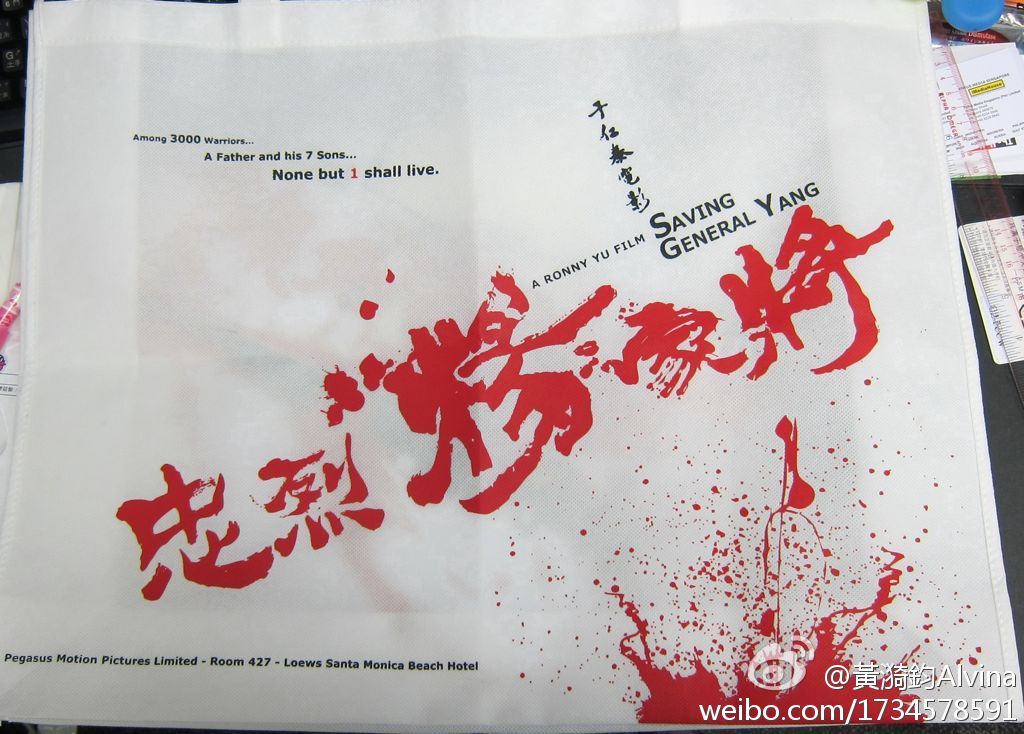 Among 3000 Warriors...
A Father and his 7 Sons...
None but 1 shall live.
于仁泰電影
A RONNY YU FILM
SAVING
GENERAL YANG
忠烈楊家將
Pegasus Motion Pictures Limited - Room 427 - Loews Santa Monica Beach Hotel
@黃猗鈞Alvina
weibo.com/1734578591